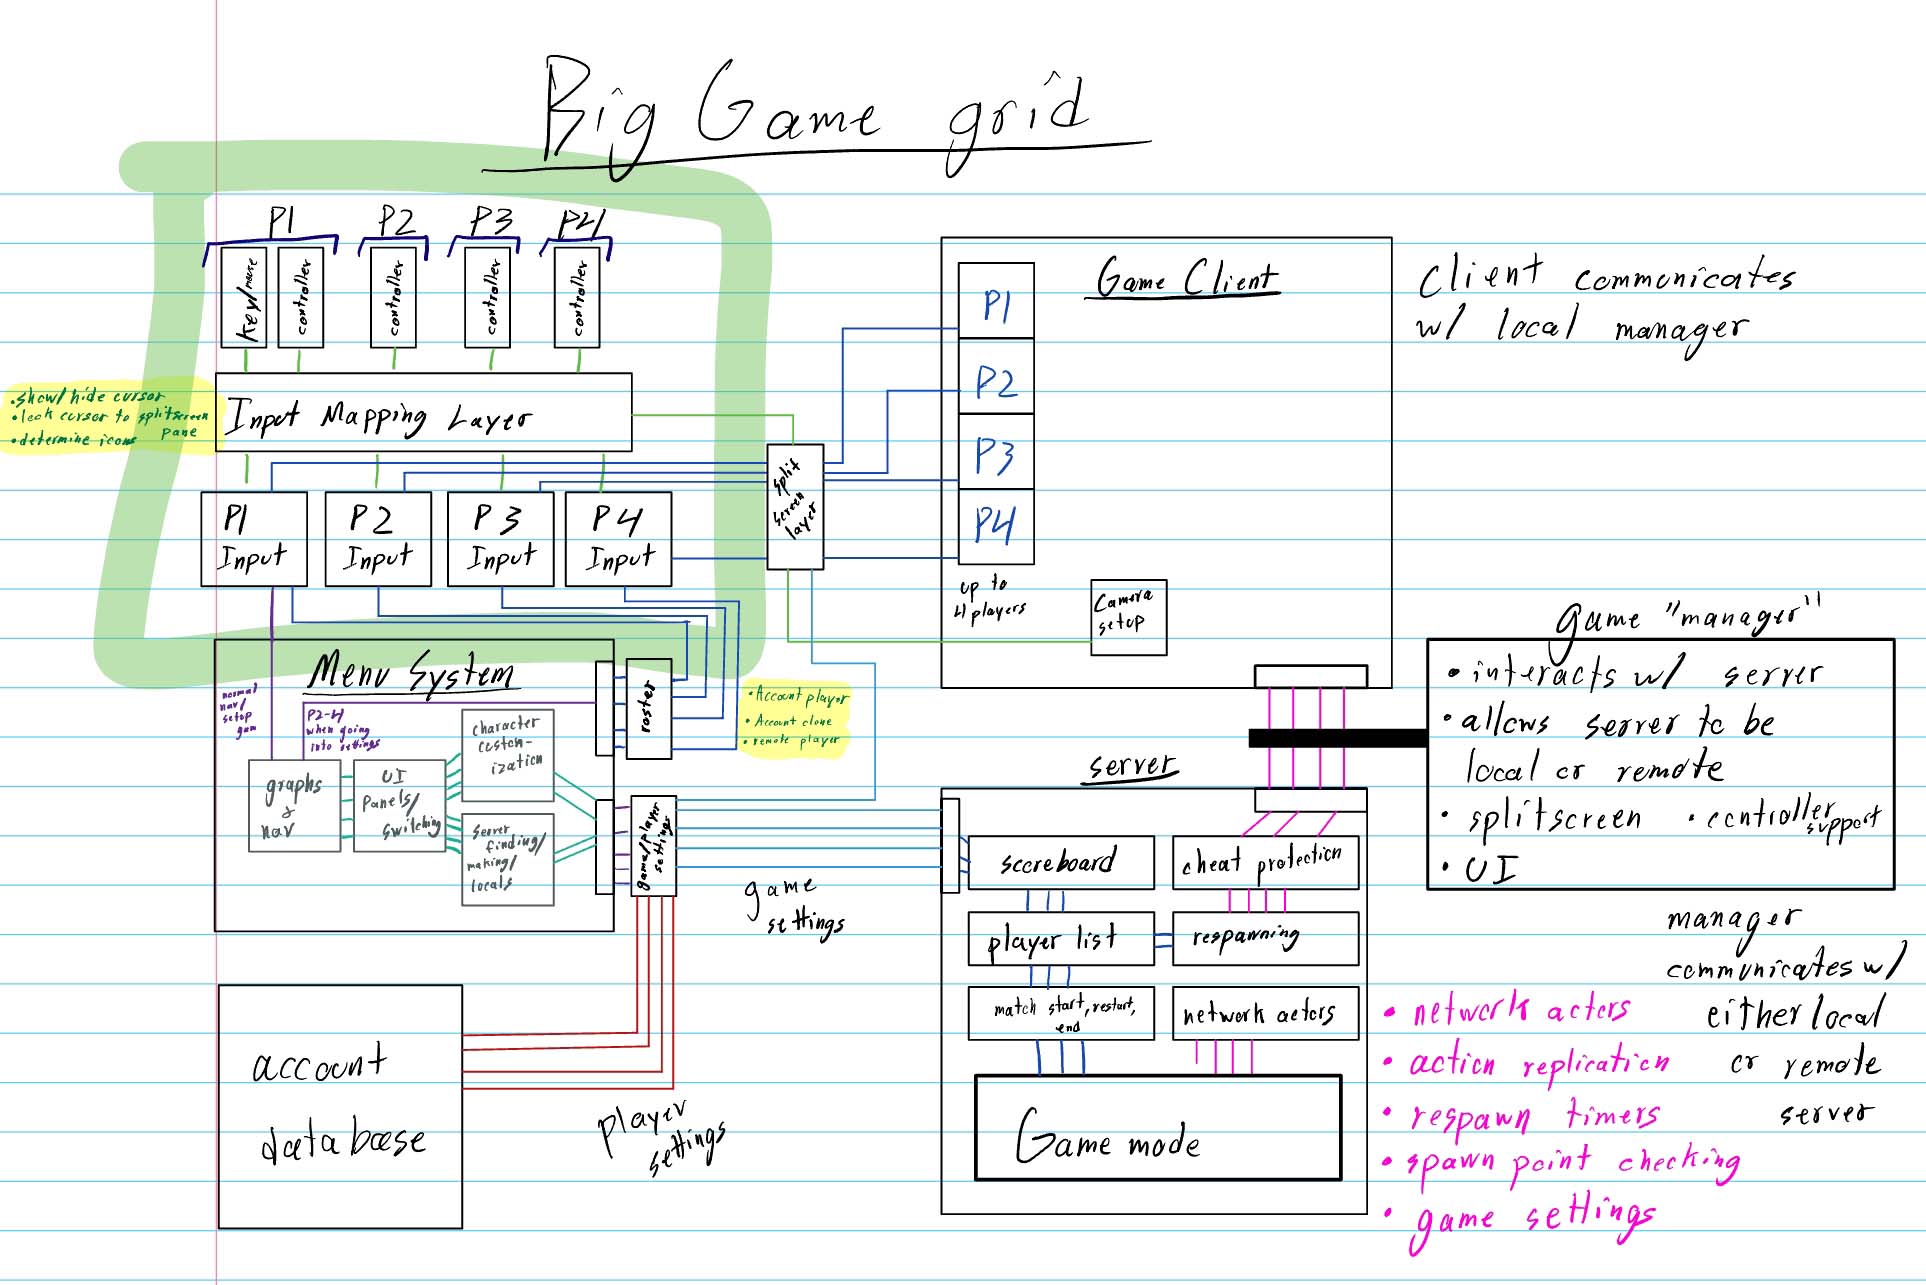 Big Game grid
P1
P2
P3
P4
Key/mouse
controller
controller
controller
controller
• show/hide cursor
• lock cursor to splitscreen
pane
• determine icons
Input Mapping Layer
split
screen
layer
P1
Input
P2
Input
P3
Input
P4
Input
Game Client
P1
P2
P3
P4
up to
4 players
Camera
setup
Client communicates
w/ local manager
Menu System
normal
nav/
setup
gam
P2-4
when going
into settings
graphs
& nav
UI
panels/
switching
character
custom-
ization
server
finding/
making/
locals
roster
• Account player
• Account clone
• remote player
game/player
settings
game
settings
account
database
player
settings
server
scoreboard
cheat protection
player list
respawning
match start, restart,
end
network actors
Game mode
game "manager"
• interacts w/ server
• allows server to be
local or remote
• splitscreen
• controller
support
• UI
manager
communicates w/
either local
or remote
server
• network actors
• action replication
• respawn timers
• spawn point checking
• game settings